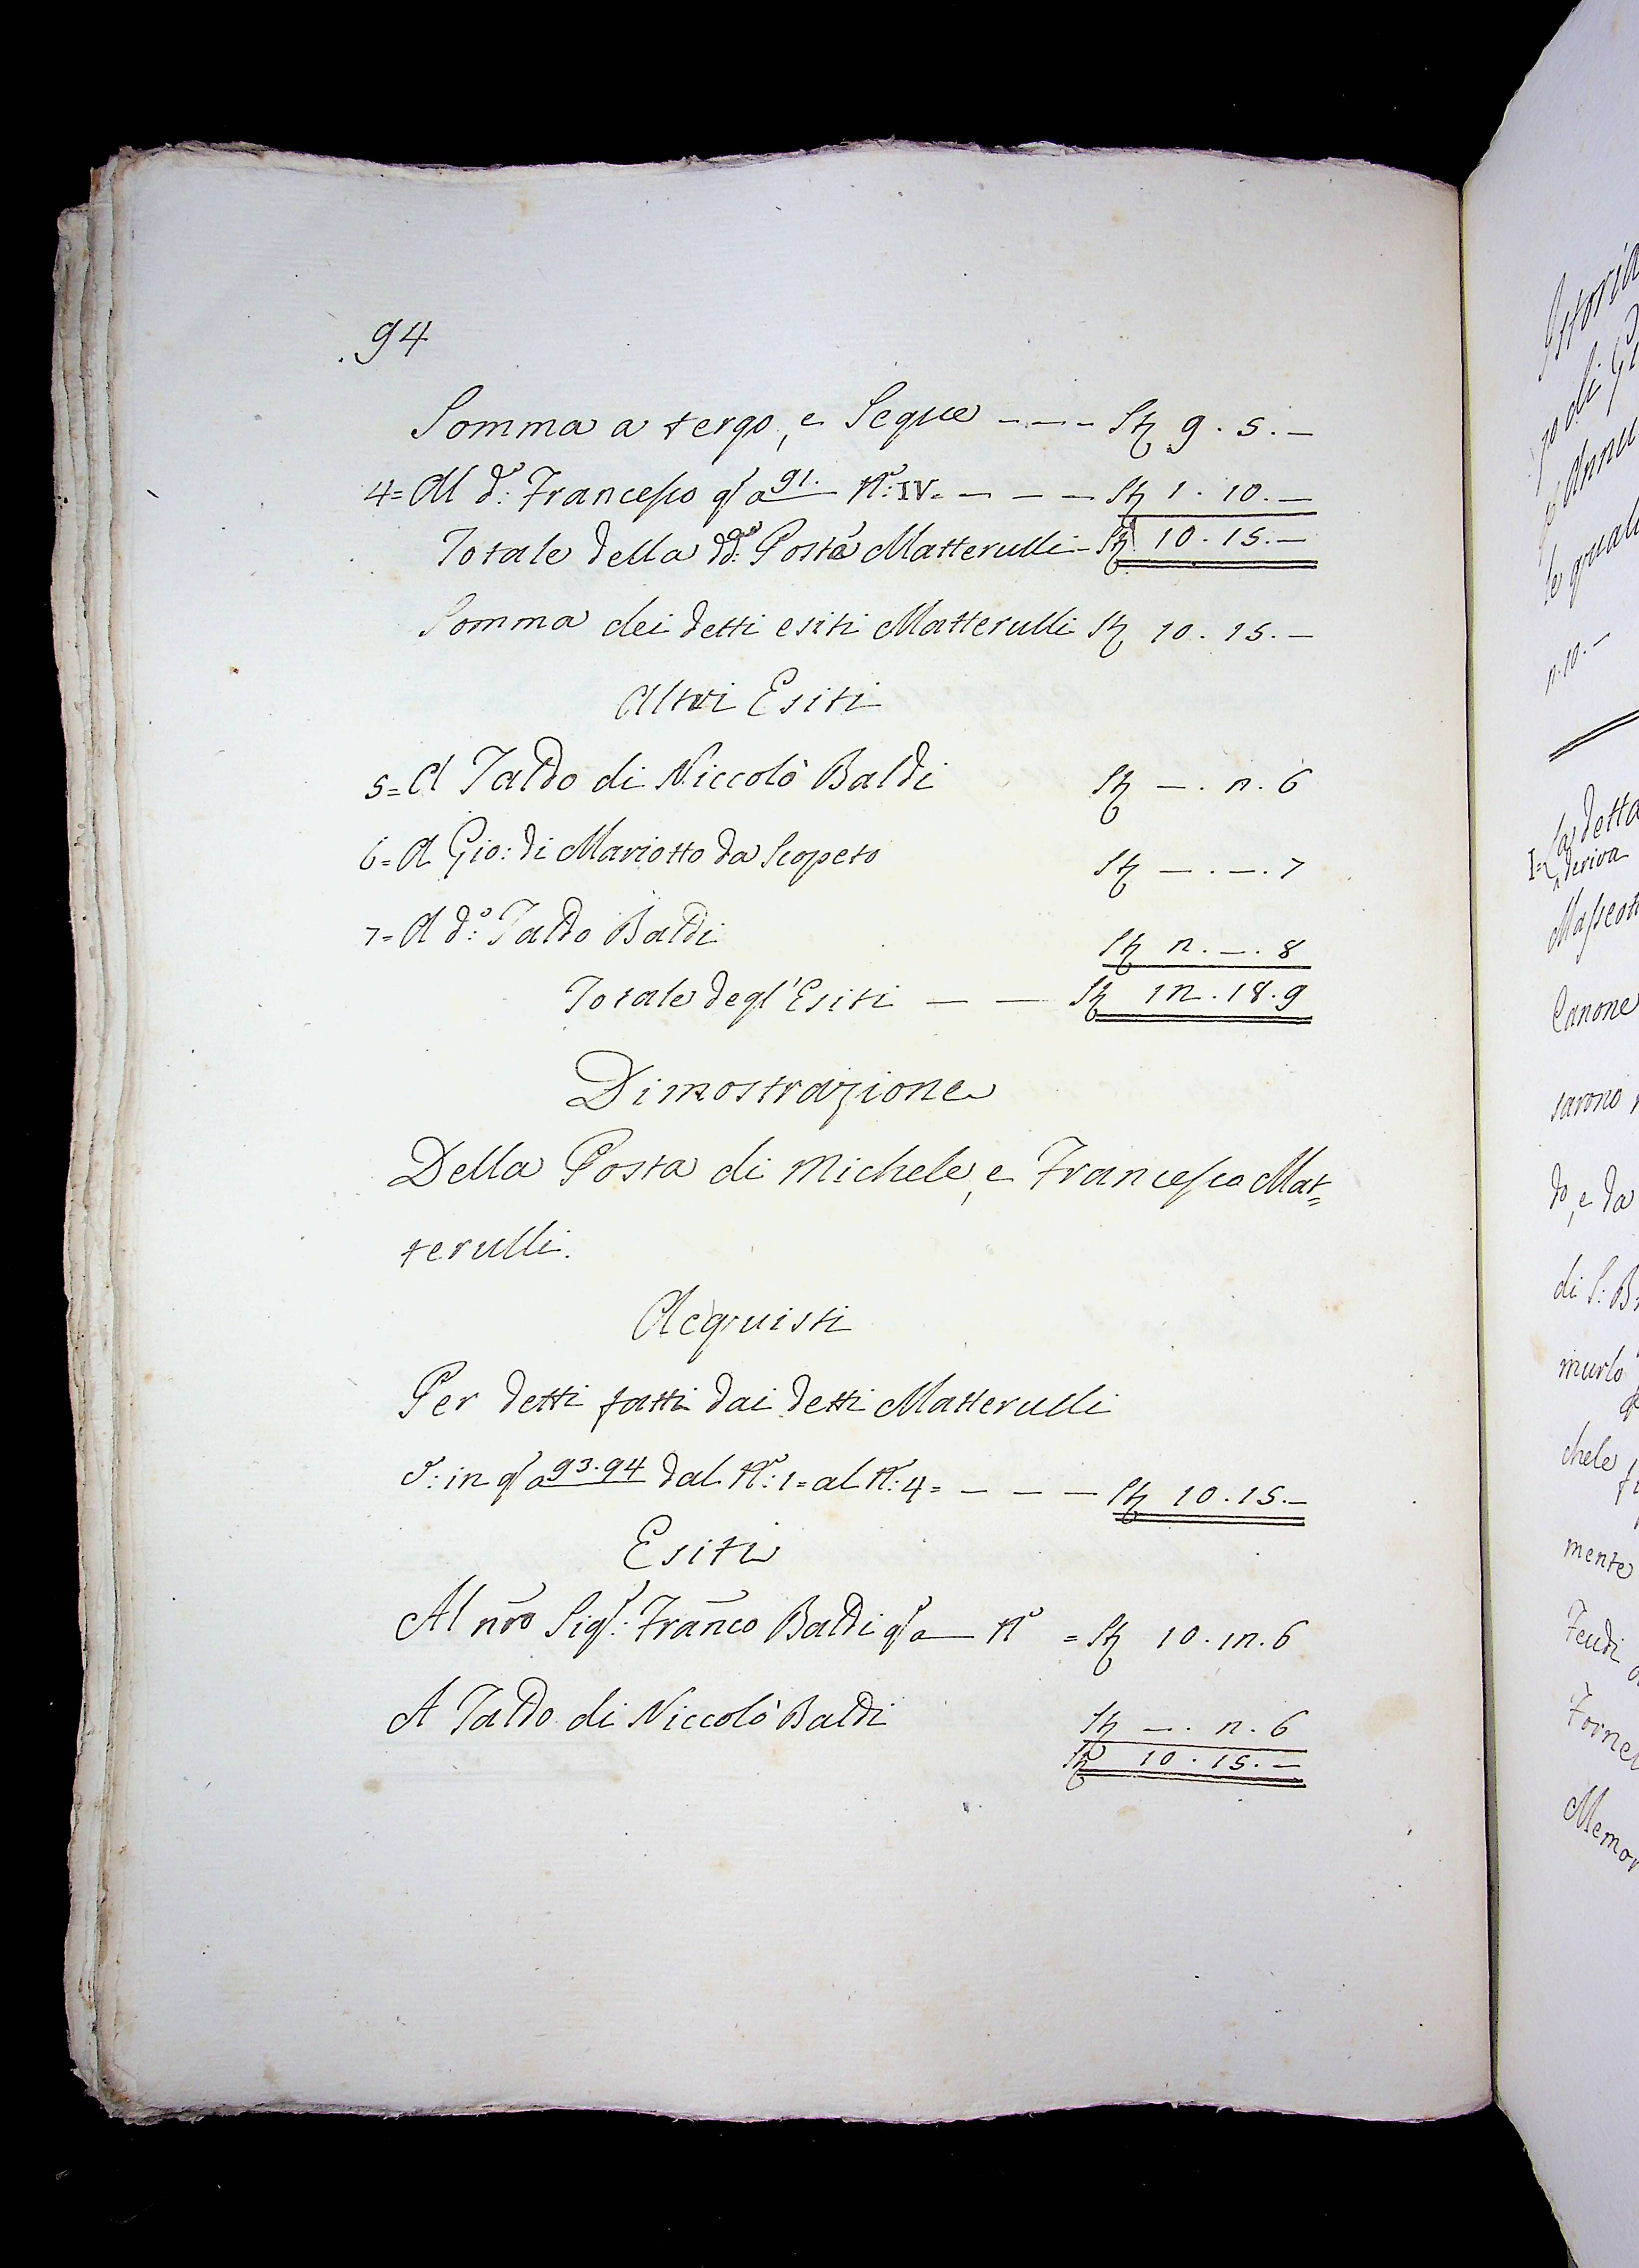 94
Somma a tergo, e Segue --- St 9. 5. –
4= Al do: Francesco qsa 91. No: IV. – – – St 1. 10. –
Totale della dda: Posta Matterulli - St 10. 15. –
Somma dei detti esiti Matterulli St 10. 15. –
Altri Esiti
5= A Taldo di Niccolò Baldi St –. 2. 6
6= A Gio: di Mariotto da Scopeto St –. –. 7
7= A do: Taldo Baldi St 2. –. 8
Totale degl'Esiti – – St 12. 18. 9
Dimostrazione
Della Posta di Michele, e Francesco Mat=
terulli.
Acquisti
Per detti fatti dai detti Matterulli
da: in qsa 93. 94 dal No: 1= al No: 4= – – – St 10. 15. –
Esiti
Al nro Sigr: Franco Baldi qsa — No = St 10. 12. 6
A Taldo di Niccolò Baldi St –. 2. 6
St 10. 15. –
Istoria
le quali
2. 10. –
I= La detta
deriva
Canone
sarono
do, e da
di S: B
murlo
chele
mente
Feudi
Memor